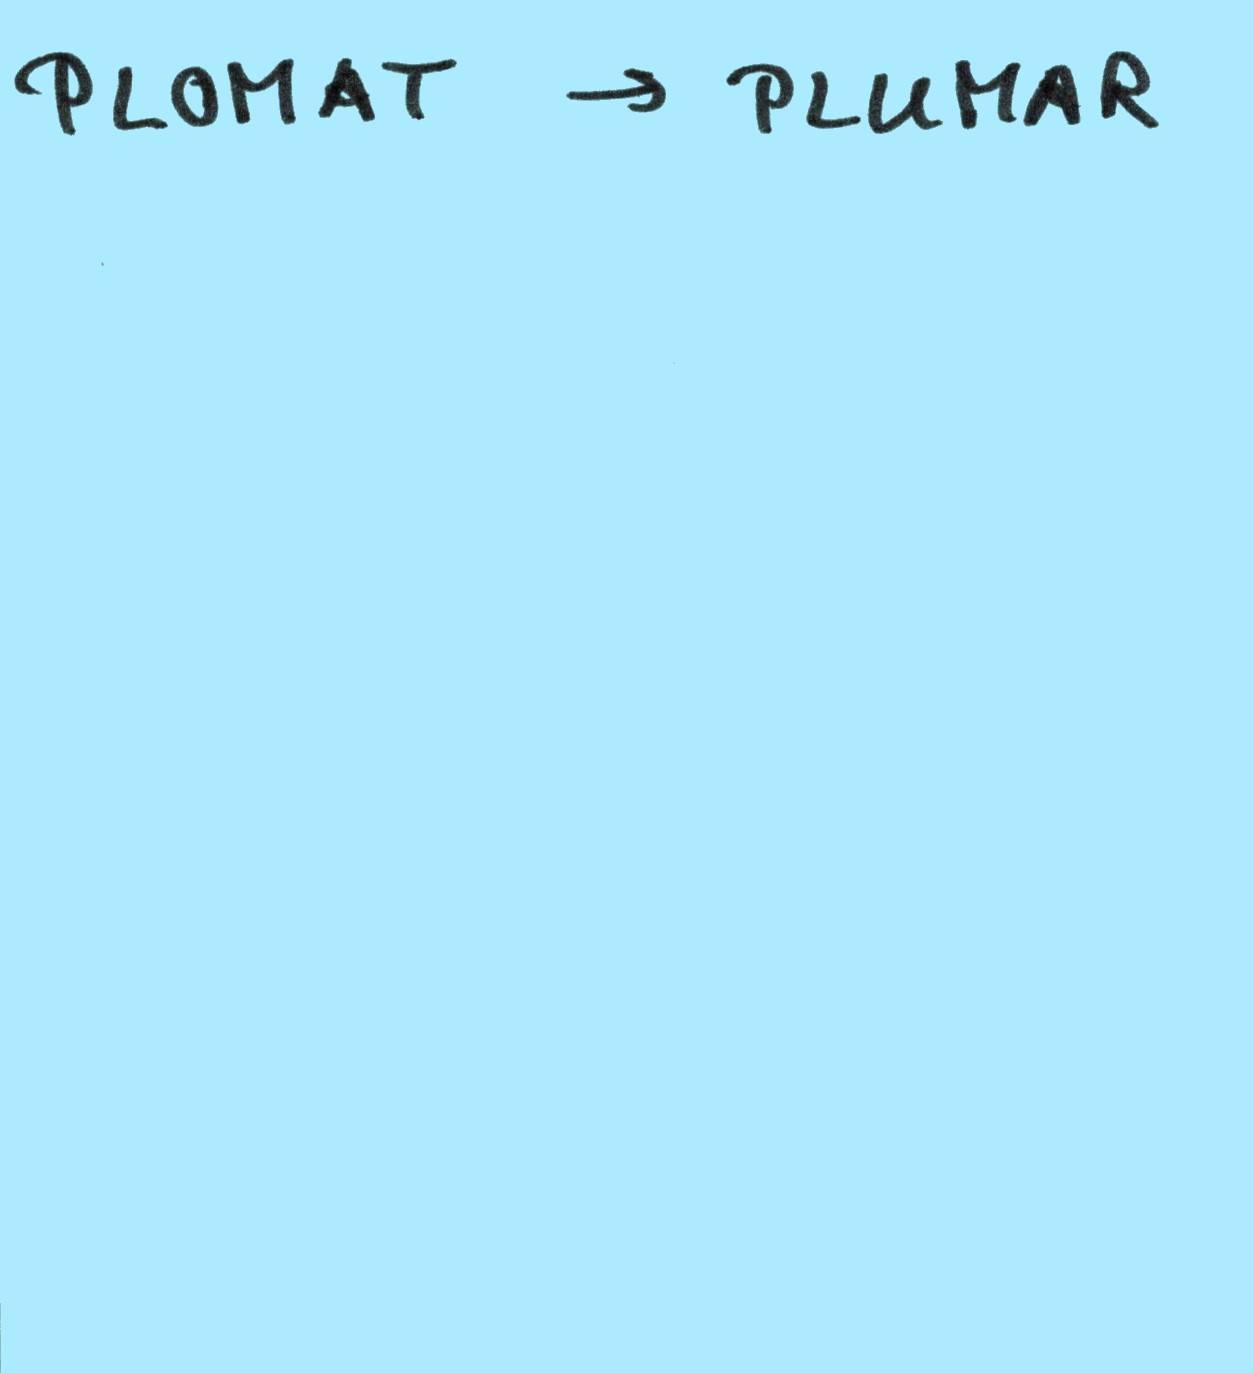 PLOMAT → PLUMAR